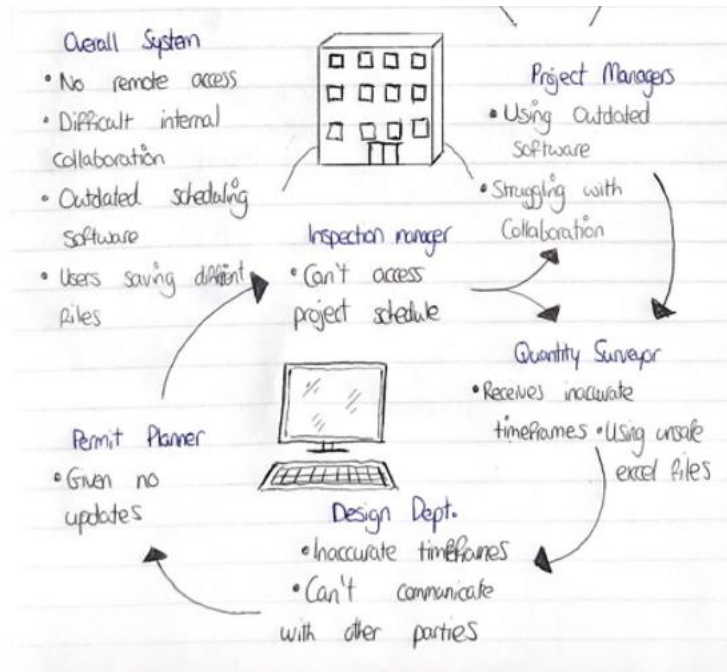 Overall System
• No remote access
• Difficult internal
collaboration
• Outdated scheduling
software
• Users saving different
files
Project Managers
• Using Outdated
software
• Struggling with
Collaboration
Inspection manager
• Can't access
project schedule
Quantity Surveyor
• Receives inaccurate
timeframes • Using unsafe
excel files
Design Dept.
• Inaccurate timeframes
• Can't communicate
with other parties
Permit Planner
• Given no
updates